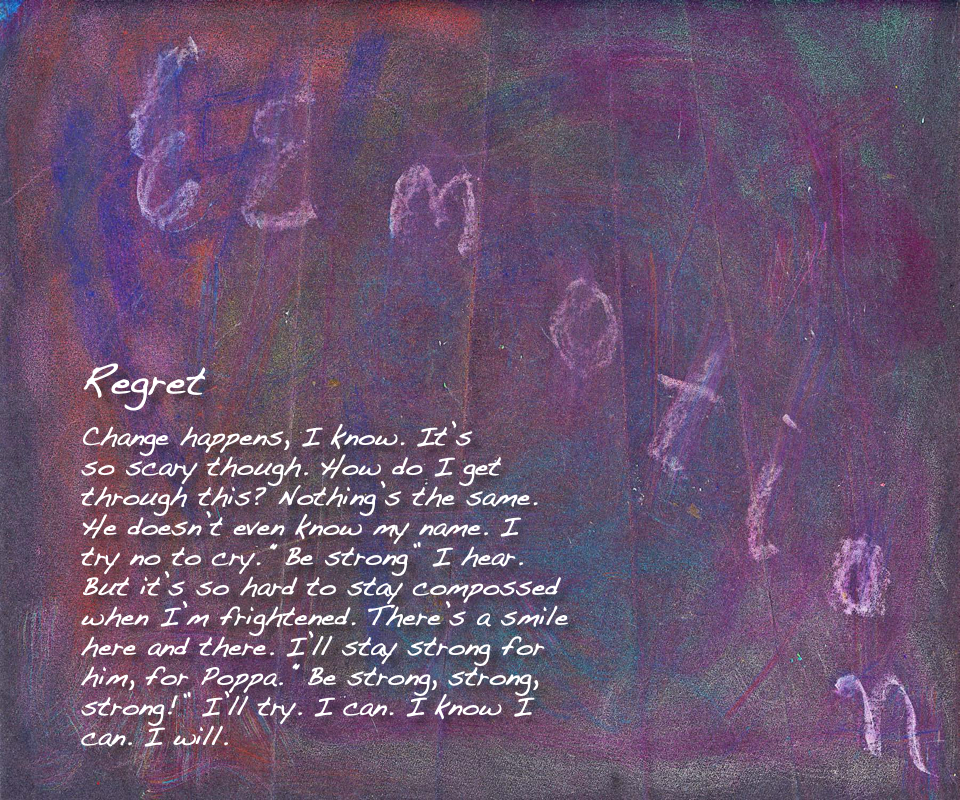 E m o t i o n
Regret
Change happens, I know. It's
so scary though. How do I get
through this? Nothing's the same.
He doesn't even know my name. I
try no to cry. "Be strong" I hear.
But it's so hard to stay compossed
when I'm frightened. There's a smile
here and there. I'll stay strong for
him, for Poppa. "Be strong, strong,
strong!" I'll try. I can. I know I
can. I will.